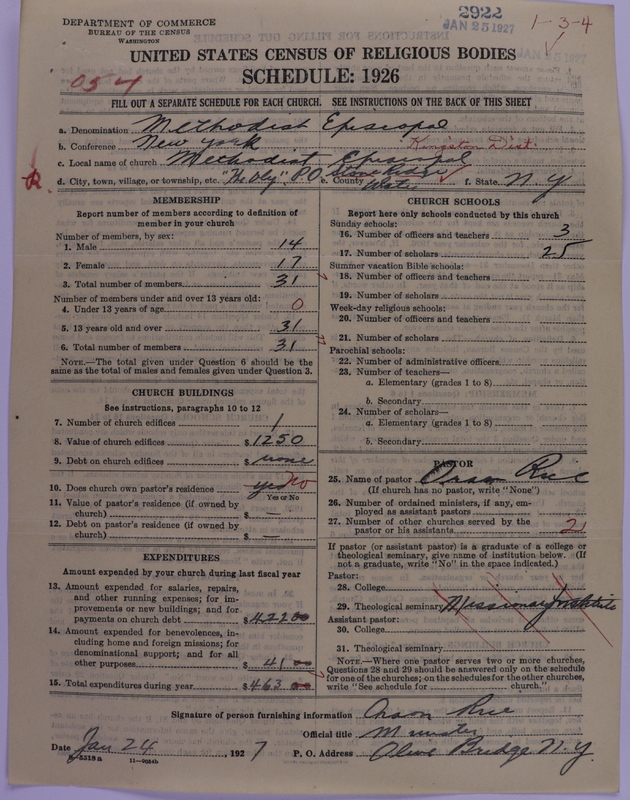 DEPARTMENT OF COMMERCE
BUREAU OF THE CENSUS
WASHINGTON
2922
JAN 25 1927
1-3-4
UNITED STATES CENSUS OF RELIGIOUS BODIES
SCHEDULE: 1926
054
FILL OUT A SEPARATE SCHEDULE FOR EACH CHURCH. SEE INSTRUCTIONS ON THE BACK OF THIS SHEET
a. Denomination Methodist Episcopal
b. Conference New York Kingston Dist.
c. Local name of church Methodist Episcopal
d. City, town, village, or township, etc. "The Vly" P.O. Stone Ridge e. County f. State N. Y.
MEMBERSHIP
Report number of members according to definition of
member in your church
Number of members, by sex:
1. Male 14
2. Female 17
3. Total number of members 31
Number of members under and over 13 years old:
4. Under 13 years of age 0
5. 13 years old and over 31
6. Total number of members 31
NOTE.—The total given under Question 6 should be the
same as the total of males and females given under Question 3.
CHURCH BUILDINGS
See instructions, paragraphs 10 to 12
7. Number of church edifices 1
8. Value of church edifices $ 1250
9. Debt on church edifices $ none
10. Does church own pastor's residence yes No
Yes or No
11. Value of pastor's residence (if owned by
church) $ —
12. Debt on pastor's residence (if owned by
church) $ —
EXPENDITURES
Amount expended by your church during last fiscal year
13. Amount expended for salaries, repairs,
and other running expenses; for im-
provements or new buildings; and for
payments on church debt $ 422 00
14. Amount expended for benevolences, in-
cluding home and foreign missions; for
denominational support; and for all
other purposes $ 41 00
15. Total expenditures during year $ 463 00
CHURCH SCHOOLS
Report here only schools conducted by this church
Sunday schools:
16. Number of officers and teachers 3
17. Number of scholars 25
Summer vacation Bible schools:
18. Number of officers and teachers
19. Number of scholars
Week-day religious schools:
20. Number of officers and teachers
21. Number of scholars
Parochial schools:
22. Number of administrative officers
23. Number of teachers—
a. Elementary (grades 1 to 8)
b. Secondary
24. Number of scholars—
a. Elementary (grades 1 to 8)
b. Secondary
PASTOR
25. Name of pastor Orson Rice
(If church has no pastor, write "None")
26. Number of ordained ministers, if any, em-
ployed as assistant pastors
27. Number of other churches served by the
pastor or his assistants 2
If pastor (or assistant pastor) is a graduate of a college or
theological seminary, give name of institution below. (If
not a graduate, write "No" in the space indicated.)
Pastor:
28. College
29. Theological seminary Missionary Institute
Assistant pastor:
30. College
31. Theological seminary
NOTE.—Where one pastor serves two or more churches,
Questions 28 and 29 should be answered only on the schedule
for one of the churches; on the schedules for the other churches,
write "See schedule for church."
Signature of person furnishing information Orson Rice
Official title Minister
Date Jan 24, 1927 P. O. Address Olive Bridge N. Y.
11—9054b